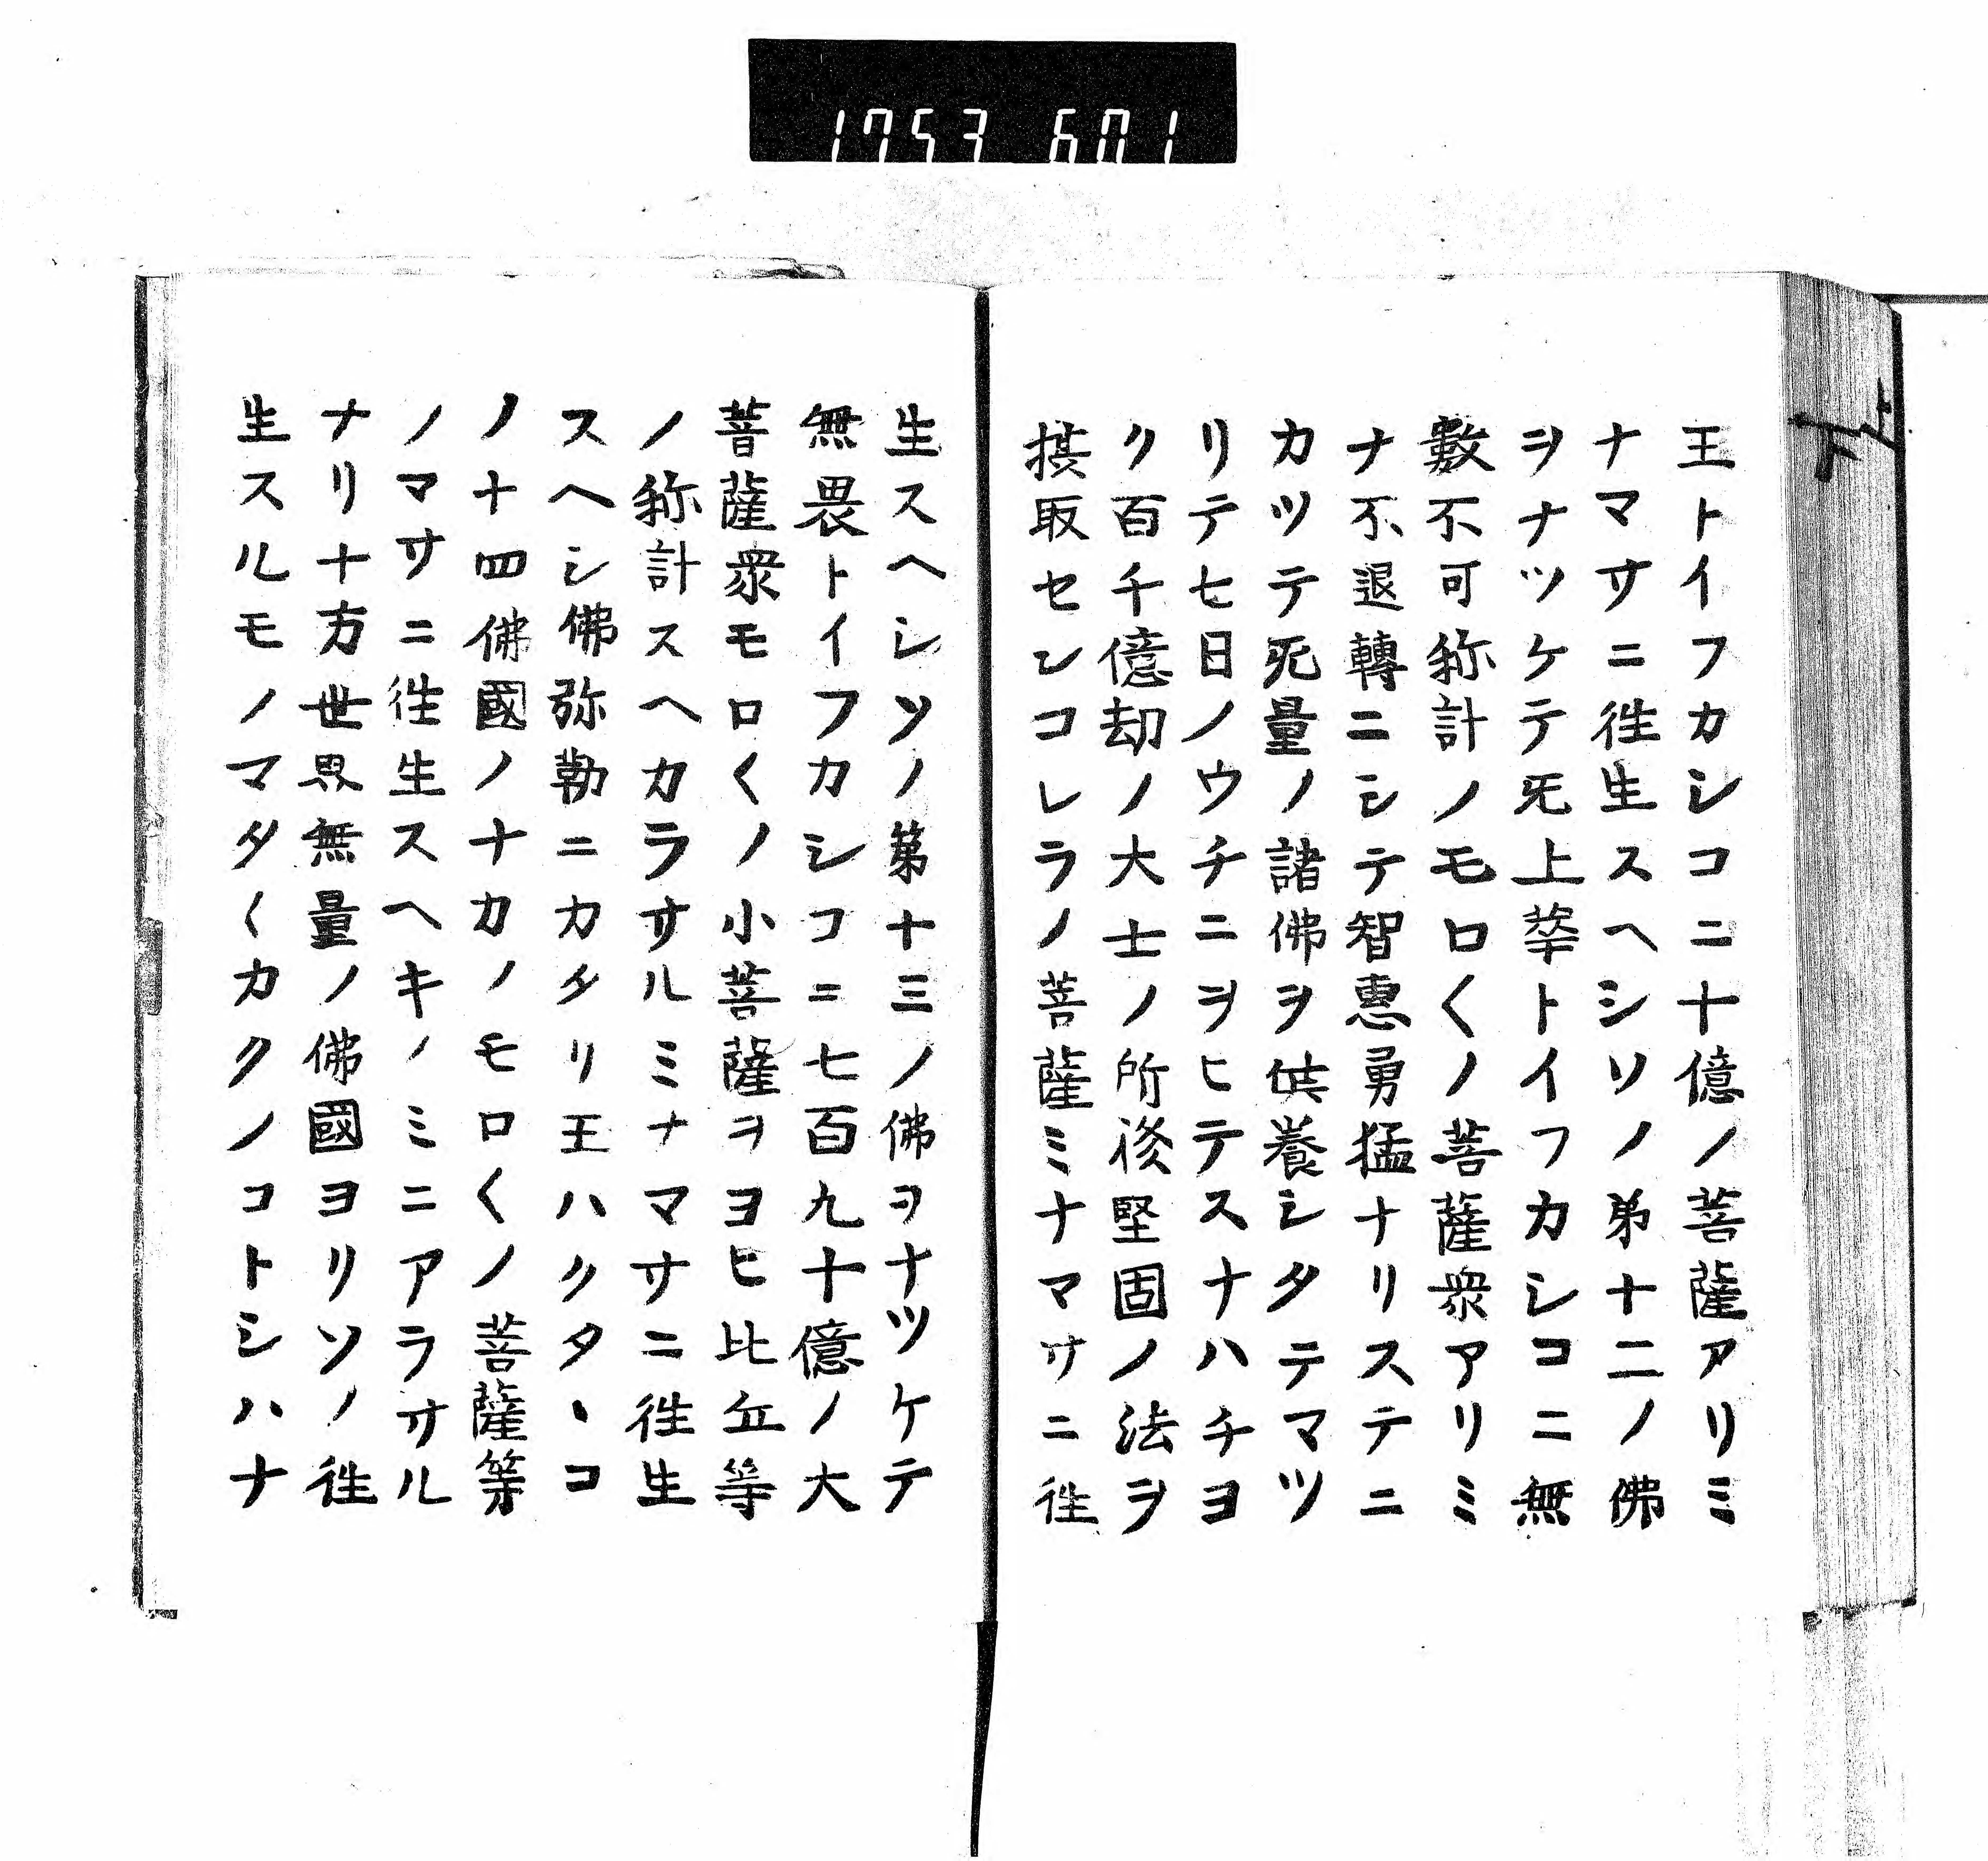 1753 601
王トイフカシコニ十億ノ菩薩アリミ
ナマサニ徃生スヘシソノ弟十二ノ佛
ヲナツケテ旡上華トイフカシコニ無
數不可称計ノモロ〱ノ菩薩衆アリミ
ナ不退轉ニシテ智惠勇猛ナリステニ
カツテ旡量ノ諸佛ヲ供養シタテマツ
リテ七日ノウチニヲヒテスナハチヨ
ク百千億劫ノ大士ノ所修堅固ノ法ヲ
摂取センコレラノ菩薩ミナマサニ徃
生スヘシソノ第十三ノ佛ヲナツケテ
無畏トイフカシコニ七百九十億ノ大
菩薩衆モロ〱ノ小菩薩ヲヨヒ比丘等
ノ称計スヘカラサルミナマサニ徃生
スヘシ佛弥勒ニカタリ王ハクタヽコ
ノ十四佛國ノナカノモロ〱ノ菩薩等
ノマサニ徃生スヘキノミニアラサル
ナリ十方世界無量ノ佛國ヨリソノ徃
生スルモノマタ〱カクノコトシハナ